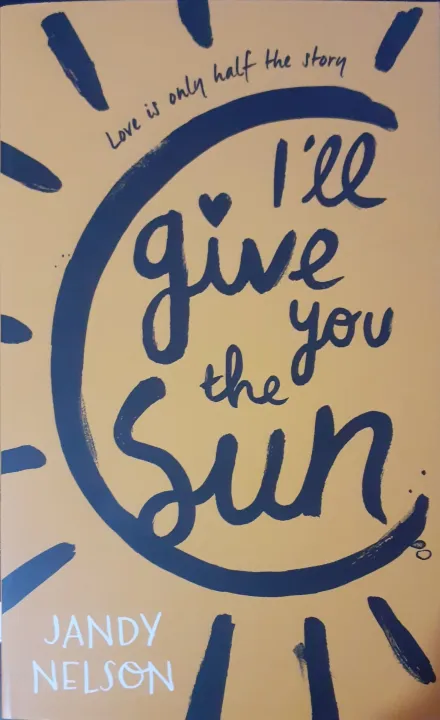 Love is only half the story
I'll
give
you
the
Sun
JANDY
NELSON